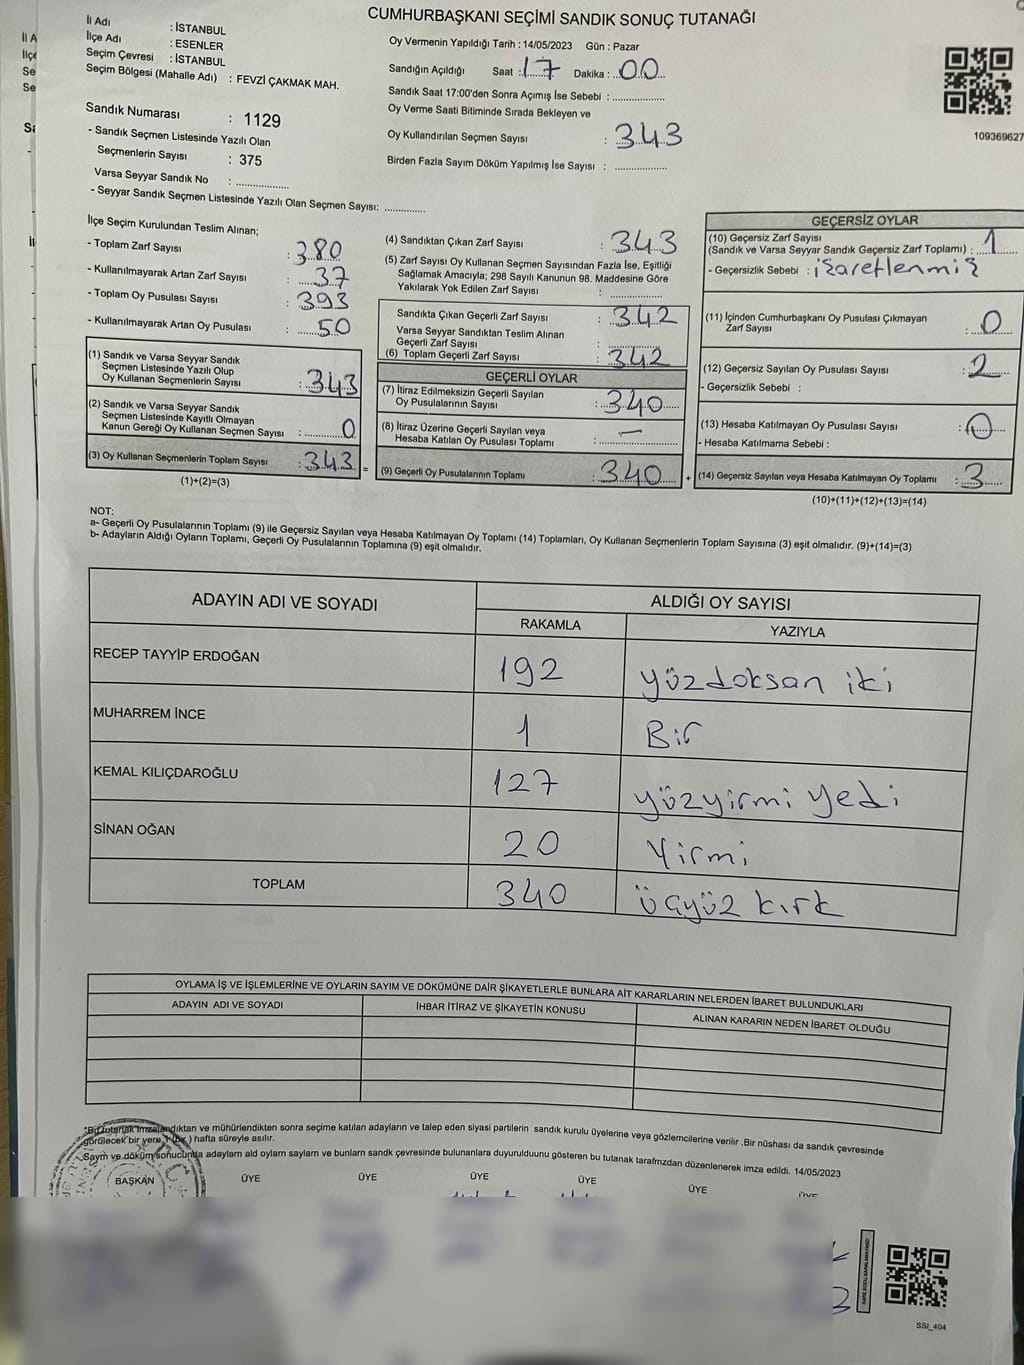 CUMHURBAŞKANI SEÇİMİ SANDIK SONUÇ TUTANAĞI
İl Adı : İSTANBUL
İlçe Adı : ESENLER
Seçim Çevresi : İSTANBUL
Seçim Bölgesi (Mahalle Adı) : FEVZİ ÇAKMAK MAH.
Sandık Numarası : 1129
- Sandık Seçmen Listesinde Yazılı Olan
Seçmenlerin Sayısı : 375
Varsa Seyyar Sandık No : ................
- Seyyar Sandık Seçmen Listesinde Yazılı Olan Seçmen Sayısı: ............
Oy Vermenin Yapıldığı Tarih : 14/05/2023 Gün : Pazar
Sandığın Açıldığı Saat : 17 Dakika : 00
Sandık Saat 17:00'den Sonra Açımış İse Sebebi : ................
Oy Verme Saati Bitiminde Sırada Bekleyen ve
Oy Kullandırılan Seçmen Sayısı : 343
Birden Fazla Sayım Döküm Yapılmış İse Sayısı : ................
109369627
İlçe Seçim Kurulundan Teslim Alınan;
- Toplam Zarf Sayısı : 380
- Kullanılmayarak Artan Zarf Sayısı : 37
- Toplam Oy Pusulası Sayısı : 393
- Kullanılmayarak Artan Oy Pusulası : 50
(1) Sandık ve Varsa Seyyar Sandık
Seçmen Listesinde Yazılı Olup
Oy Kullanan Seçmenlerin Sayısı : 343
(2) Sandık ve Varsa Seyyar Sandık
Seçmen Listesinde Kayıtlı Olmayan
Kanun Gereği Oy Kullanan Seçmen Sayısı : 0
(3) Oy Kullanan Seçmenlerin Toplam Sayısı : 343 =
(1)+(2)=(3)
(4) Sandıktan Çıkan Zarf Sayısı : 343
(5) Zarf Sayısı Oy Kullanan Seçmen Sayısından Fazla İse, Eşitliği
Sağlamak Amacıyla; 298 Sayılı Kanunun 98. Maddesine Göre
Yakılarak Yok Edilen Zarf Sayısı : ................
Sandıkta Çıkan Geçerli Zarf Sayısı : 342
Varsa Seyyar Sandıktan Teslim Alınan
Geçerli Zarf Sayısı : ................
(6) Toplam Geçerli Zarf Sayısı : 342
GEÇERLİ OYLAR
(7) İtiraz Edilmeksizin Geçerli Sayılan
Oy Pusulalarının Sayısı : 340
(8) İtiraz Üzerine Geçerli Sayılan veya
Hesaba Katılan Oy Pusulası Toplamı : —
(9) Geçerli Oy Pusulalarının Toplamı : 340 +
GEÇERSİZ OYLAR
(10) Geçersiz Zarf Sayısı
(Sandık ve Varsa Seyyar Sandık Geçersiz Zarf Toplamı) : 1
- Geçersizlik Sebebi : işaretlenmiş
(11) İçinden Cumhurbaşkanı Oy Pusulası Çıkmayan
Zarf Sayısı : 0
(12) Geçersiz Sayılan Oy Pusulası Sayısı : 2
- Geçersizlik Sebebi :
(13) Hesaba Katılmayan Oy Pusulası Sayısı : 0
- Hesaba Katılmama Sebebi :
(14) Geçersiz Sayılan veya Hesaba Katılmayan Oy Toplamı : 3
(10)+(11)+(12)+(13)=(14)
NOT:
a- Geçerli Oy Pusulalarının Toplamı (9) ile Geçersiz Sayılan veya Hesaba Katılmayan Oy Toplamı (14) Toplamları, Oy Kullanan Seçmenlerin Toplam Sayısına (3) eşit olmalıdır. (9)+(14)=(3)
b- Adayların Aldığı Oyların Toplamı, Geçerli Oy Pusulalarının Toplamına (9) eşit olmalıdır.
ADAYIN ADI VE SOYADI ALDIĞI OY SAYISI
RAKAMLA YAZIYLA
RECEP TAYYİP ERDOĞAN 192 yüzdoksan iki
MUHARREM İNCE 1 Bir
KEMAL KILIÇDAROĞLU 127 yüzyirmi yedi
SİNAN OĞAN 20 Yirmi
TOPLAM 340 üçyüz kırk
OYLAMA İŞ VE İŞLEMLERİNE VE OYLARIN SAYIM VE DÖKÜMÜNE DAİR ŞİKAYETLERLE BUNLARA AİT KARARLARIN NELERDEN İBARET BULUNDUKLARI
ADAYIN ADI VE SOYADI İHBAR İTİRAZ VE ŞİKAYETİN KONUSU ALINAN KARARIN NEDEN İBARET OLDUĞU
*Bu tutanak imzalandıktan ve mühürlendikten sonra seçime katılan adayların ve talep eden siyasi partilerin sandık kurulu üyelerine veya gözlemcilerine verilir .Bir nüshası da sandık çevresinde
görülecek bir yere 1 (bir ) hafta süreyle asılır.
Sayım ve döküm sonucunda adayların ald oyların sayların ve bunların sandk çevresinde bulunanlara duyurulduunu gösteren bu tutanak tarafmzdan düzenlenerek imza edildi. 14/05/2023
BAŞKAN ÜYE ÜYE ÜYE ÜYE ÜYE ÜYE
SSI_404